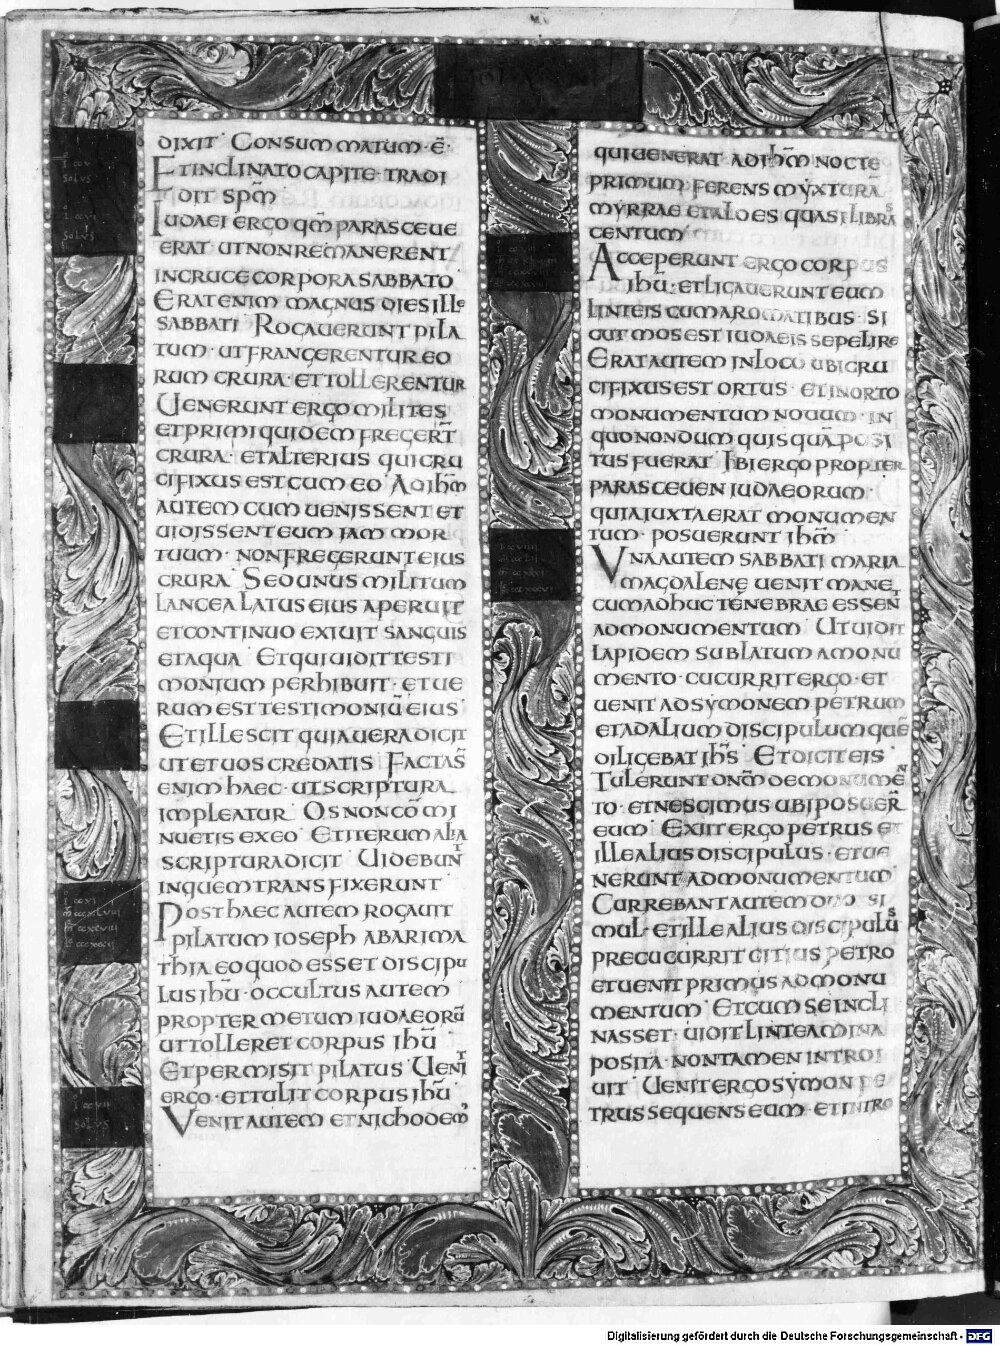 DIXIT · CONSUMMATUM · Ē ·
ETINCLINATO CAPITE · TRADI
DIT SPM̄
IUDAEI ERGO QM̄ PARASCEUE
ERAT UT NON REMANERENT
IN CRUCE CORPORA SABBATO
ERAT ENIM MAGNUS DIES ILLE
SABBATI ROGAUERUNT PILA
TUM · UT FRANGERENTUR EO
RUM CRURA · ET TOLLERENTUR
UENERUNT ERGO MILITES
ET PRIMI QUIDEM FREGERT̄
CRURA · ET ALTERIUS QUI CRU
CIFIXUS EST CUM EO · AD IHM̄
AUTEM CUM UENISSENT ET
UIDISSENT EUM IAM MOR
TUUM · NON FREGERUNT EIUS
CRURA · SED UNUS MILITUM
LANCEA LATUS EIUS APERUIT
ET CONTINUO EXIUIT SANGUIS
ET AQUA · ET QUI UIDIT TESTI
MONIUM PERHIBUIT · ET UE
RUM EST TESTIMONIŪ EIUS ·
ET ILLE SCIT QUIA UERA DICIT
UT ET UOS CREDATIS FACTA S̄
ENIM HAEC · UT SCRIPTURA
IMPLEATUR OS NON CŌMI
NUETIS EX EO · ET ITERUM ALIA
SCRIPTURA DICIT UIDEBUNT
IN QUEM TRANSFIXERUNT
POST HAEC AUTEM ROGAUIT
PILATUM IOSEPH AB ARIMA
THIA EO QUOD ESSET DISCIPU
LUS IHŪ · OCCULTUS AUTEM
PROPTER METUM IUDAEORŪ
UT TOLLERET CORPUS IHŪ
ET PERMISIT PILATUS UENIT
ERGO · ET TULIT CORPUS IHŪ
VENIT AUTEM ET NICHODEM̄
QUI UENERAT AD IHM̄ NOCTE
PRIMUM FERENS MYXTURĀ
MYRRAE ET ALOES QUASI LIBRAS
CENTUM
ACCEPERUNT ERGO CORPUS
IHŪ · ET LIGAUERUNT EUM
LINTEIS CUM AROMATIBUS · SI
CUT MOS EST IUDAEIS SEPELIRE
ERAT AUTEM IN LOCO UBI CRU
CIFIXUS EST ORTUS · ET IN ORTO
MONUMENTUM NOUUM · IN
QUO NONDUM QUISQUĀ POSI
TUS FUERAT IBI ERGO PROPTER
PARASCEUEN IUDAEORUM ·
QUIA IUXTA ERAT MONUMEN
TUM · POSUERUNT IHM̄
VNA AUTEM SABBATI MARIA
MAGDALENE UENIT MANE
CUM ADHUC TENEBRAE ESSENT
AD MONUMENTUM UT UIDIT
LAPIDEM SUBLATUM A MONU
MENTO · CUCURRIT ERGO · ET
UENIT AD SYMONEM PETRUM
ET AD ALIUM DISCIPULUM QUĒ
DILIGEBAT IHS̄ · ET DICIT EIS ·
TULERUNT DNM̄ DE MONUMEN
TO · ET NESCIMUS UBI POSUER̄
EUM · EXIIT ERGO PETRUS ET
ILLE ALIUS DISCIPULUS · ET UE
NERUNT AD MONUMENTUM
CURREBANT AUTEM DUO SI
MUL · ET ILLE ALIUS DISCIPULUS
PRECUCURRIT CITIUS PETRO
ET UENIT PRIMUS AD MONU
MENTUM · ET CUM SE INCLI
NASSET · UIDIT LINTEAMINA
POSITA · NON TAMEN INTROI
UIT UENIT ERGO SYMON PE
TRUS SEQUENS EUM · ET INTRO
Digitalisierung gefördert durch die Deutsche Forschungsgemeinschaft - DFG